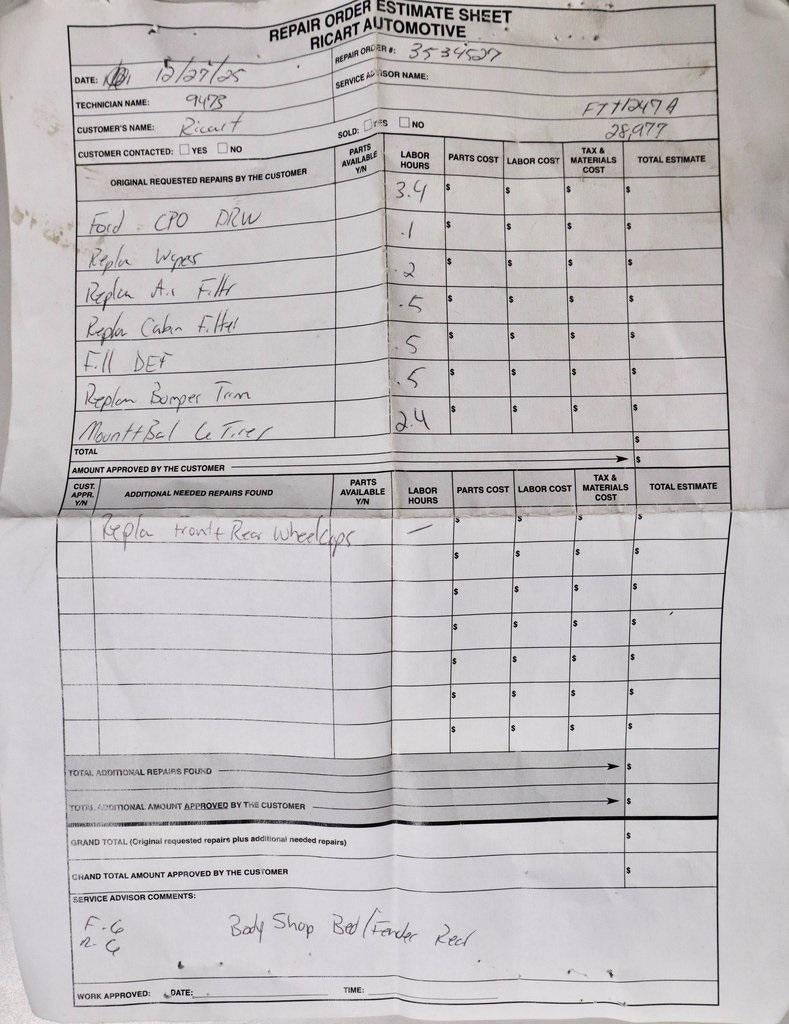 REPAIR ORDER ESTIMATE SHEET
RICART AUTOMOTIVE
DATE: 12/27/25
REPAIR ORDER #: 3534527
TECHNICIAN NAME: 9473
SERVICE ADVISOR NAME:
CUSTOMER'S NAME: Ricart
FTH247A
28,977
CUSTOMER CONTACTED: YES NO
SOLD: YES NO
ORIGINAL REQUESTED REPAIRS BY THE CUSTOMER PARTS AVAILABLE Y/N LABOR HOURS PARTS COST LABOR COST TAX & MATERIALS COST TOTAL ESTIMATE
Ford CPO DRW 3.4 $ $ $ $
Repla Wipers .1 $ $ $ $
Replan Air Filtr .2 $ $ $ $
Repla Cabin Filter .5 $ $ $ $
Fill DEF .5 $ $ $ $
Replan Bumper Trim .5 $ $ $ $
Mount+Bal 6 Tires 2.4 $ $ $ $
TOTAL $
AMOUNT APPROVED BY THE CUSTOMER $
CUST. APPR. Y/N ADDITIONAL NEEDED REPAIRS FOUND PARTS AVAILABLE Y/N LABOR HOURS PARTS COST LABOR COST TAX & MATERIALS COST TOTAL ESTIMATE
Repla Front+ Rear Wheel Caps — $ $ $ $
$ $ $ $
$ $ $ $
$ $ $ $
$ $ $ $
$ $ $ $
$ $ $ $
TOTAL ADDITIONAL REPAIRS FOUND $
TOTAL ADDITIONAL AMOUNT APPROVED BY THE CUSTOMER $
GRAND TOTAL (Original requested repairs plus additional needed repairs) $
GRAND TOTAL AMOUNT APPROVED BY THE CUSTOMER $
SERVICE ADVISOR COMMENTS:
F-6
R-6
Body Shop Bed/Fender Rear
WORK APPROVED: DATE: TIME: